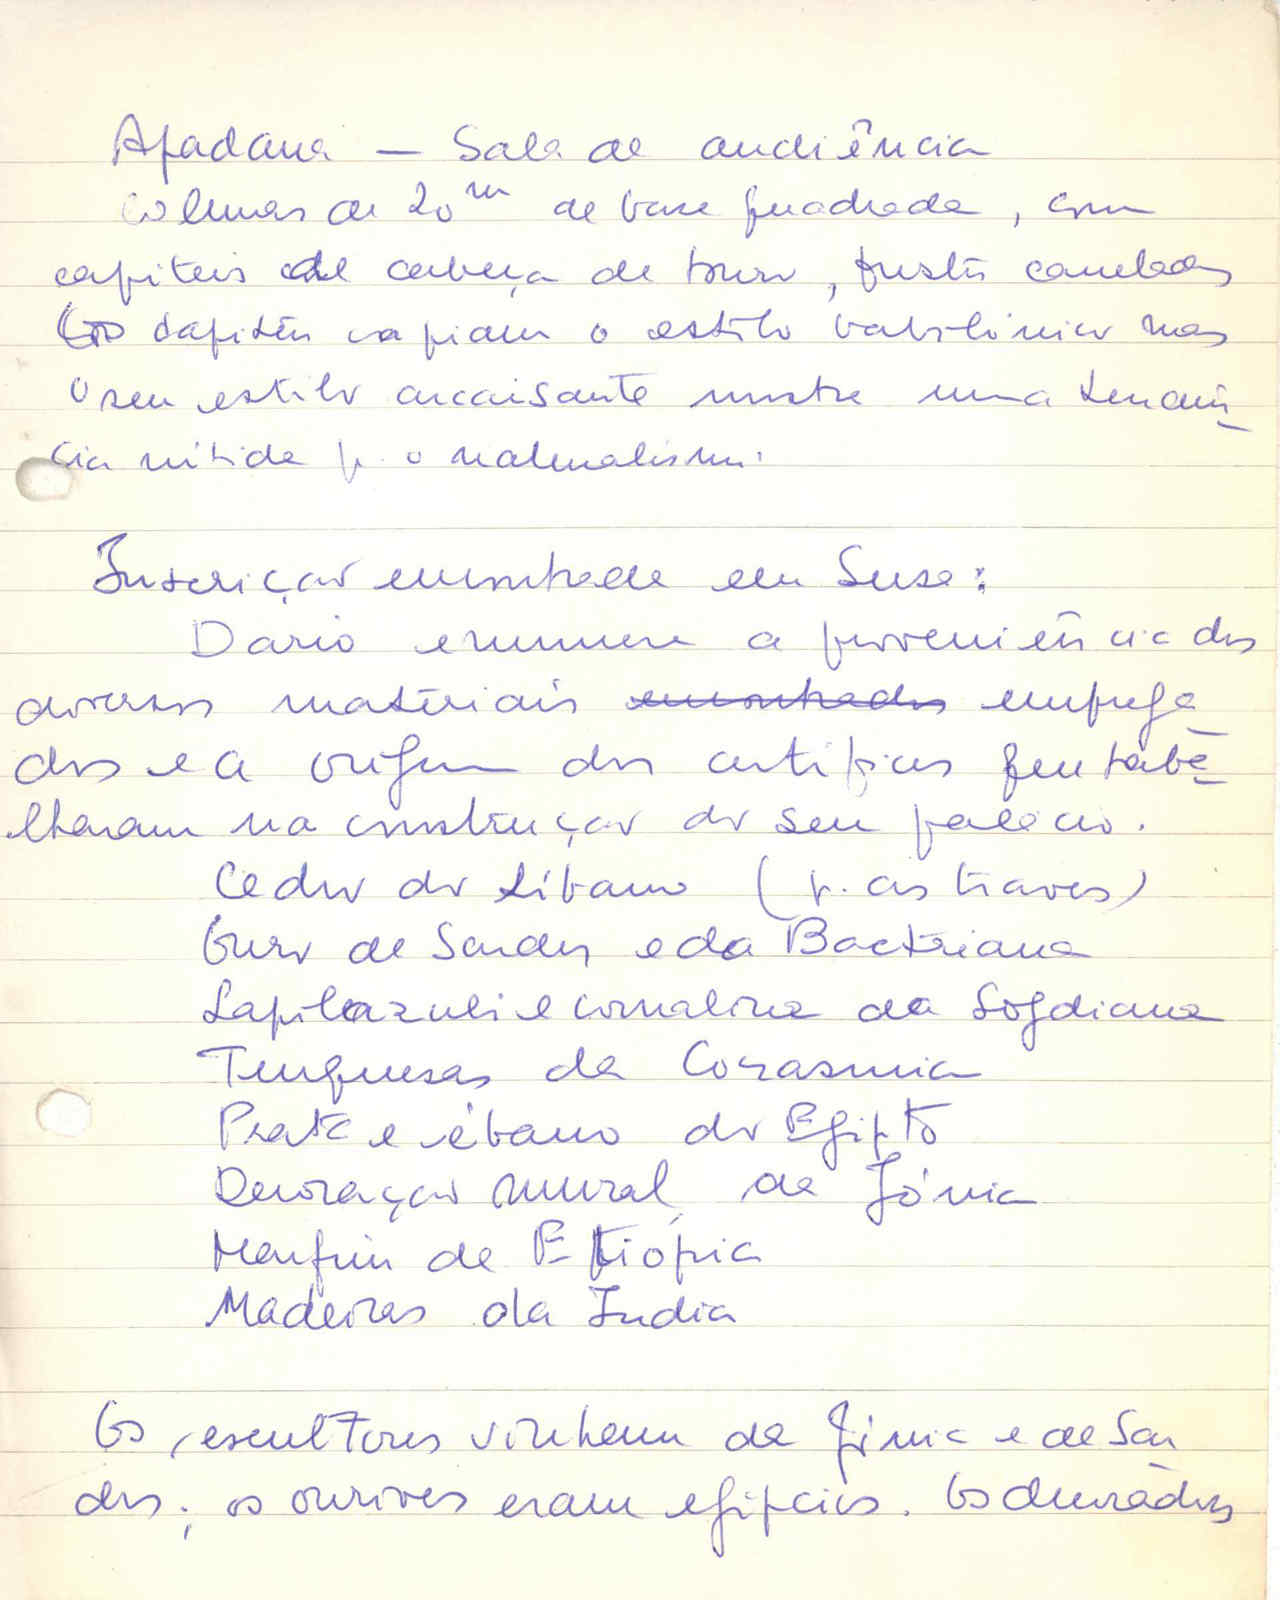 Apadana — Sala de audiência
Colunas de 20m de base quadrada, com
capiteis de cabeça de touro, fustes canelados
Os capiteis copiam o estilo babilónico mas
o seu estilo arcaisante mostra uma tendên
cia nítida p. o naturalismo.
Inscrição encontrada em Susa:
Dario enumera a proveniência dos
diversos materiais encontrados emprega
dos e a origem dos artifices que traba
lharam na construção do seu palácio.
Cedro do Líbano (p. as traves)
Ouro de Sardes e da Bactriana
Lapilazuli e cornalina da Sogdiana
Turquesas da Corasmia
Prata e ébano do Egipto
Decoração mural da Jónia
Marfim da Etiópia
Madeiras da India
Os escultores vinham da Jónia e de Sar
des; os ourives eram egípcios. Os decoradores